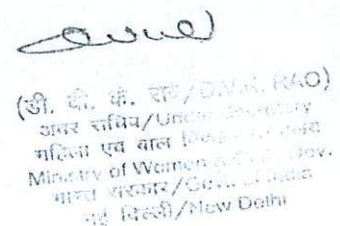 (डी. वी. के. राव/D.V.K. RAO)
अवर सचिव/Under Secretary
महिला एवं बाल
Ministry of Women & Child Dev.
भारत सरकार/Govt. of India
नई दिल्ली/New Delhi